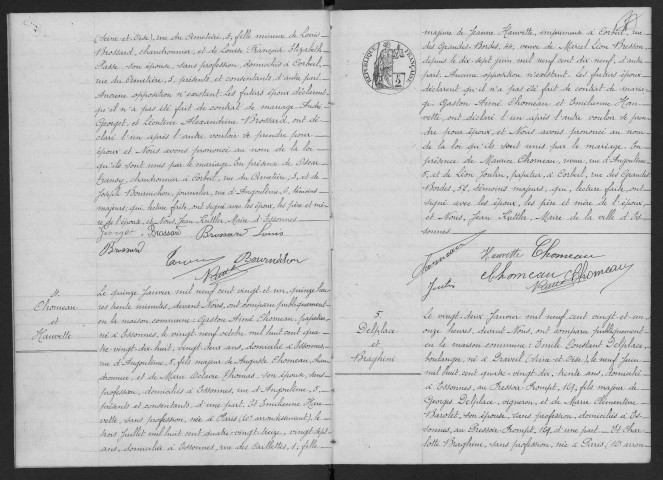 (Seine et Oise), rue du Cimetière, 5, fille mineure de Louis
Brossard, chaudronnier, et de Louise Françoise Elizabeth
son épouse, sans profession, domiciliés à Corbeil,
rue du Cimetière, 5, présents et consentants d'autre part.
Aucune opposition n'existant. Les futurs époux déclarent
qu'il n'a pas été fait de contrat de mariage. André
Georget et Léontine Alexandrine Brossard, ont dé-
claré l'un après l'autre vouloir se prendre pour
époux et Nous avons prononcé au nom de la loi
qu'ils sont unis par le mariage. En présence de
chaudronnier à Corbeil, rue du Cimetière, 5, et de
Joseph Bournichon, journalier, rue d'Angoulême, 6, témoins
majeurs, qui, lecture faite, ont signé avec les époux, les père et mè-
re de l'époux, et Nous, Jean Maire d'Essonnes
Georget Brossard Brossard Louis
Brossard
Bournichon
4.
Thomeau
et
Hauvette
Le quinze Janvier mil neuf cent vingt et un, quinze heu-
res trente minutes, devant Nous, ont comparu publiquement
en la maison commune: Gaston Aimé Thomeau, papetier,
né à Essonnes, le vingt neuf octobre mil huit cent qua-
tre-vingt-dix huit, vingt deux ans, domicilié à Essonnes,
rue d'Angoulême, 5, fils majeur de Auguste Thomeau, chau-
dronnier, et de Marie Thomas, son épouse, sans
profession, domiciliés à Essonnes, rue d'Angoulême, 5,
présents et consentants, d'une part. Et Emilienne Hau-
vette, sans profession, née à Paris (10e arrondissement), le
trois Juillet mil huit cent quatre-vingt-treize, vingt sept
ans, domiciliée à Essonnes, rue des Caillettes, 1, fille
majeure de Jeanne Hauvette, imprimeuse à Corbeil, rue
des Grandes-Bordes, 44, veuve de Marcel Léon Bresson,
depuis le dix sept juin mil neuf cent dix neuf, d'autre
part. Aucune opposition n'existant. Les futurs époux
déclarent qu'il n'a pas été fait de contrat de maria-
ge. Gaston Aimé Thomeau et Emilienne Hau-
vette, ont déclaré l'un après l'autre vouloir se pren-
dre pour époux, et Nous avons prononcé au nom
de la loi qu'ils sont unis par le mariage. En
présence de Maurice Thomeau, rue d'Angoulême,
5, et de Léon papetier, à Corbeil, rue des Grandes
Bordes, 52, témoins majeurs, qui, lecture faite, ont
signé avec les époux, les père et mère de l'époux,
et Nous, Jean Maire de la ville d'Es-
sonnes.
RÉPUBLIQUE FRANÇAISE
2
Thomeau Hauvette Thomeau
Thomeau Thomeau
5.
Delplace
et
Barghine
Le vingt-deux Janvier mil neuf cent vingt et un
onze heures, devant Nous, ont comparu publiquement
en la maison commune: Emile Constant Delplace,
boulanger, né à Draveil (Seine et Oise), le neuf Juin
mil huit cent quatre-vingt-dix, trente ans, domicilié
à Essonnes, au Pressoir-Prompt, 169, fils majeur de
Georges Delplace, vigneron, et de Marie Clémentine
Barolet, son épouse, sans profession, domiciliés à Es-
sonnes, au Pressoir-Prompt, 169, d'une part. Et Char-
lotte Barghine, sans profession, née à Paris (12e arron-